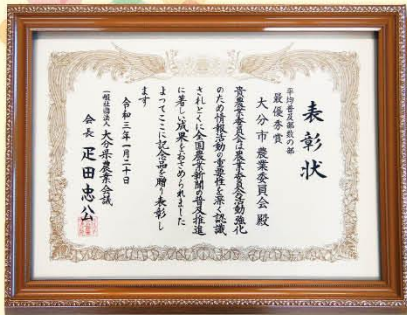 表彰状
平均普及部数の部
最優秀賞
大分市農業委員会殿
貴農業委員会は農業委員会活動強化
のため情報活動の重要性を深く認識
されとくに全国農業新聞の普及推進
に著しい成果をおさめられました
よってここに記念品を贈り表彰し
ます
令和三年一月二十日
一般社団法人大分県農業会議
会長 疋田忠公